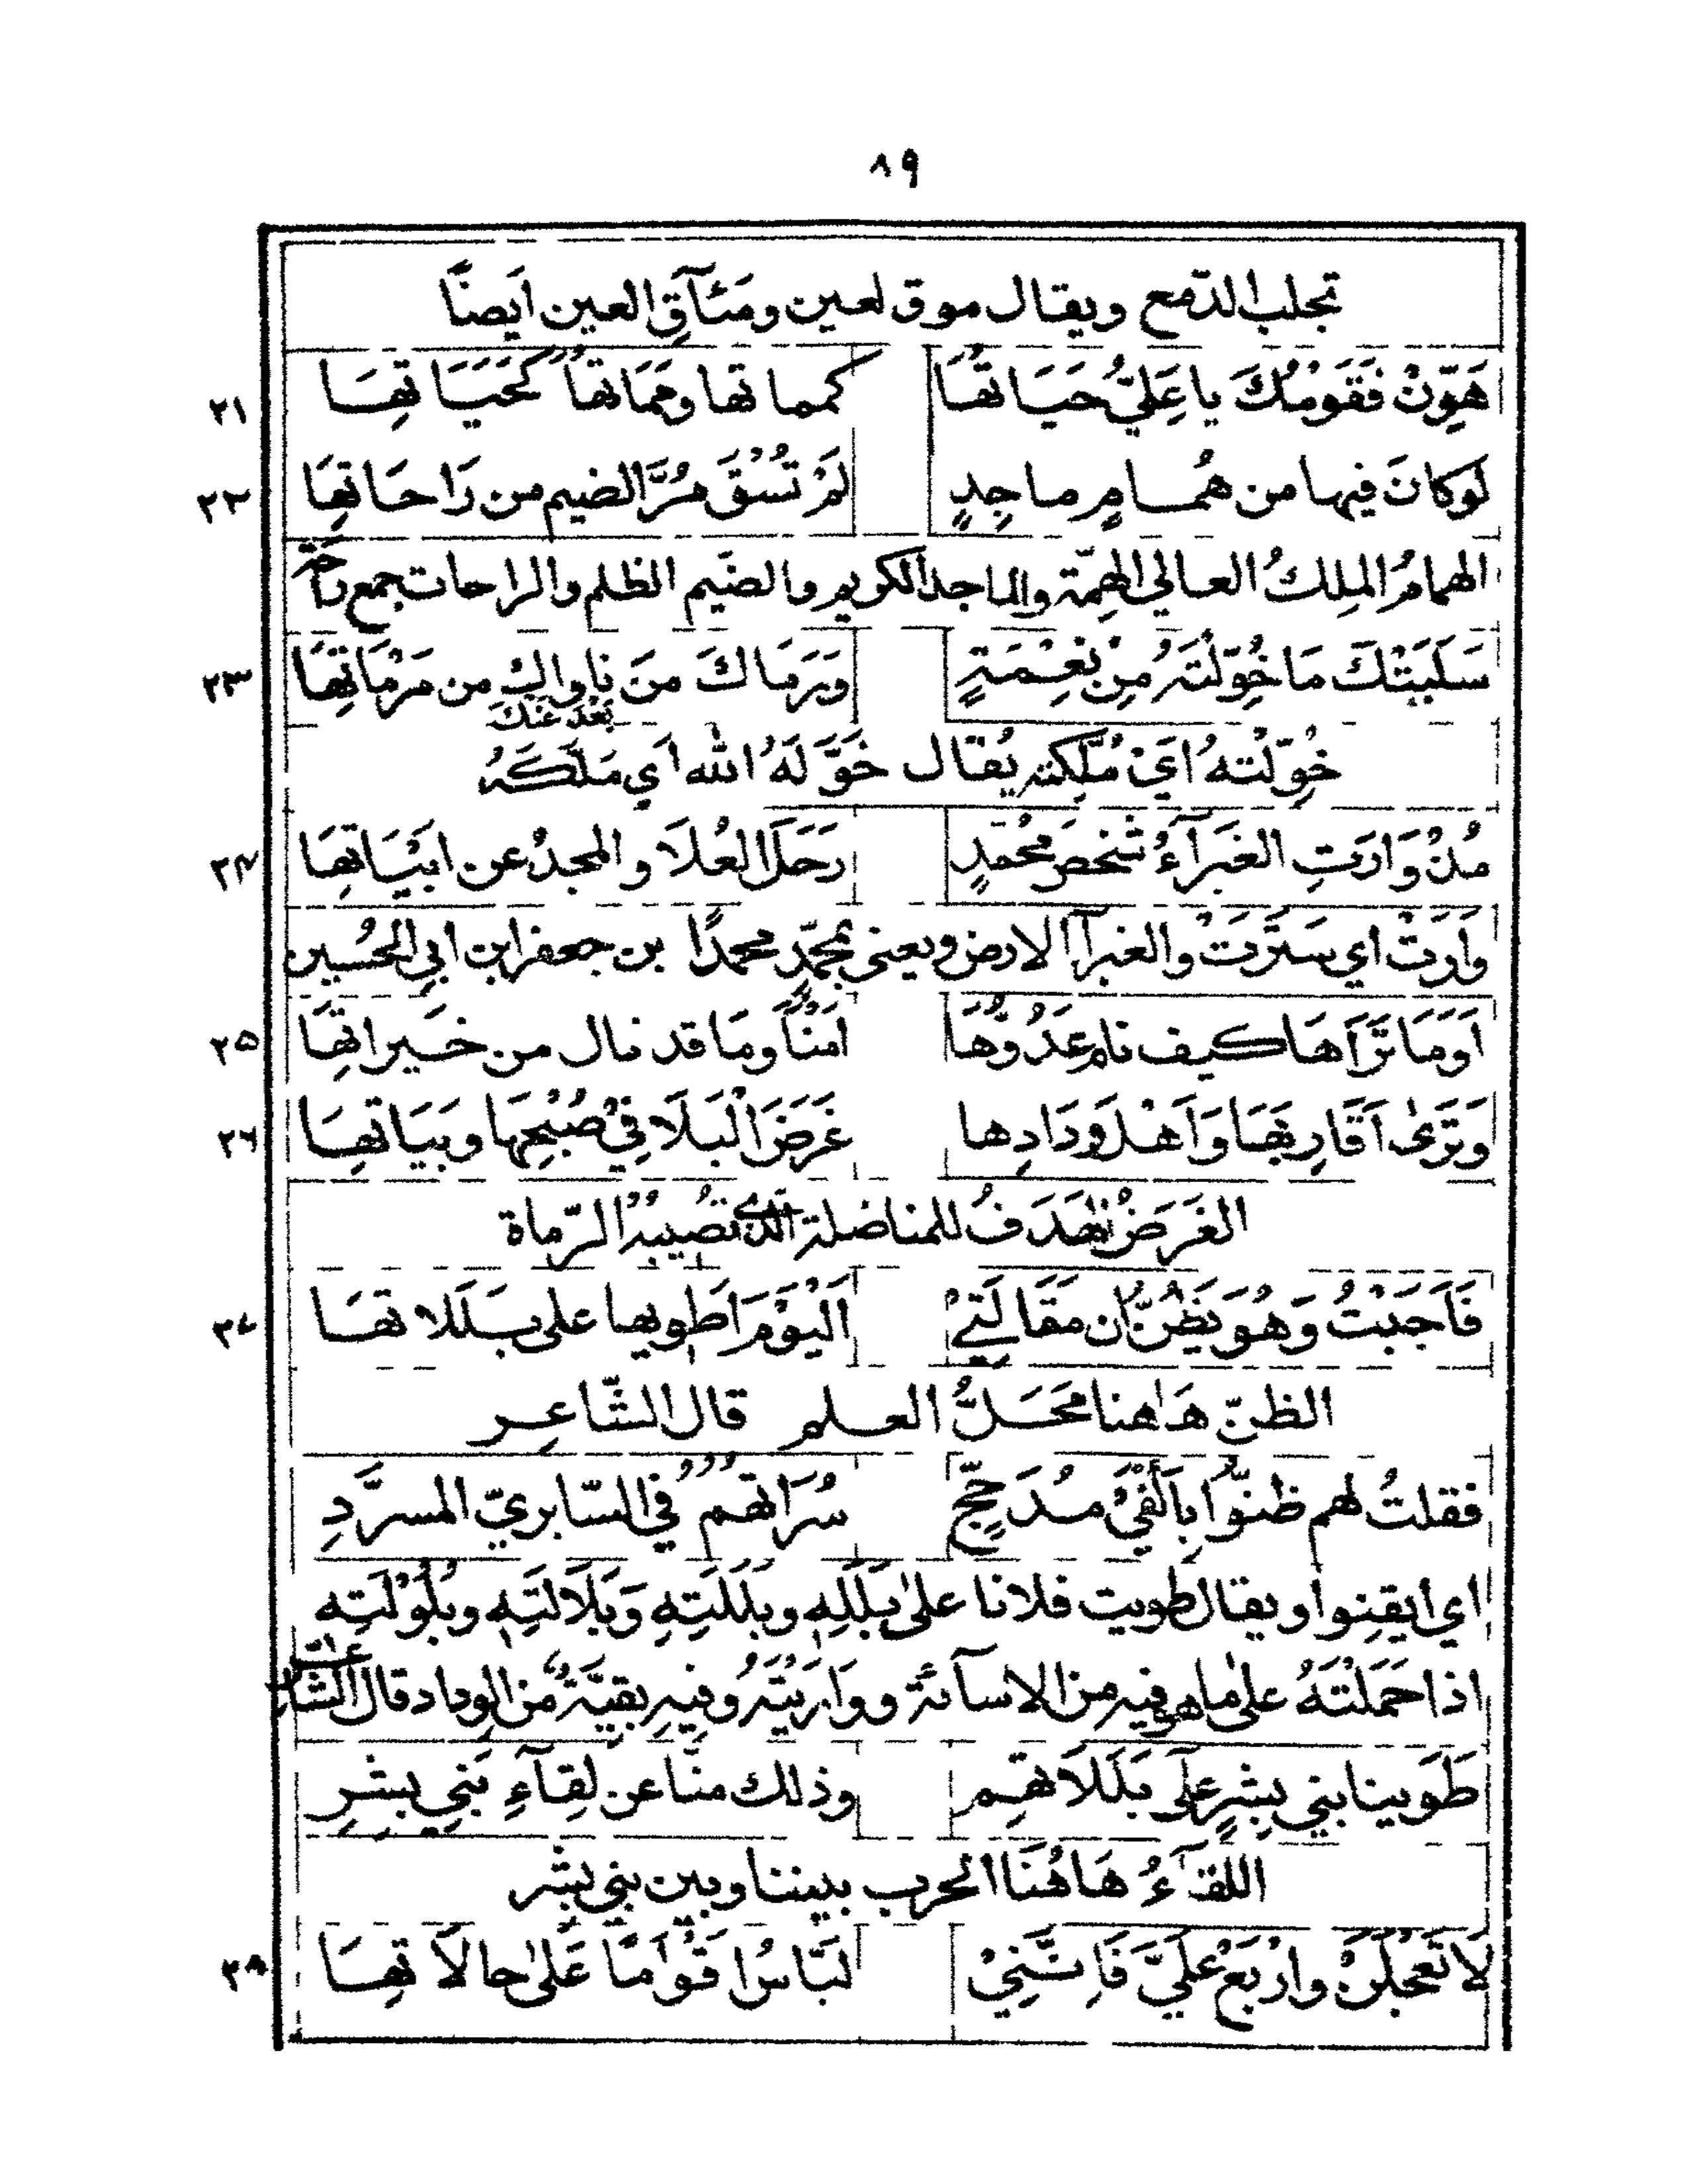 ٨٩
تجلب الدّمع ويقال موق لعين ومَئآقِ العين اَيضاً
هَوِّنْ فَقَوْمُكَ يا عَلِيُّ حَيَاتُهَا كمماتها ومَمَاتُها كَحَيَاتِهَا ٢١
لَو كانَ فيها من هُمامٍ ماجِدٍ لَمْ تُسْقَ مُرَّ الضيم من رَاحَاتِهَا ٢٢
الهمامُ الملِكُ العالي الهِمّة والماجد الكريم والضَيم الظلم والراحات جمع رَاحَة
سَلَبَتْكَ مَا خُوِّلْتَهُ مِنْ نِعْمَةٍ وَرَمَاكَ مَنْ ناواكَ من مَرْمَاتِهَا ٢٣
بَعْدَ عَنكَ
خُوِّلْتهُ اَيْ مُلِّكته يُقال خَوَّلَهُ الله اَي مَلَّكَهُ
مُذْ وَارَتِ الغَبرآءُ شَخصَ مُحمّدٍ رَحَلَ العُلاَ والمجدُ عن ابْيَاتِهَا ٢٤
وَارَتْ اي سَتَرَتْ والغبرآء الارض ويعنى بمحمّدٍ محمدًا بن جعفر ابن ابي الحُسين
اَوَمَا تَرَاهَا كيف نام عَدُوُّهَا اَمْناً ومَا قد نال من خَيراتِهَا ٢٥
وَتَرىٰ اَقَارِبَهَا وَاَهْلَ وِدَادِها غَرَضَ الْبَلَا فِيْ صُبْحِهَا وبَيَاتِهَا ٢٦
الغَرَضُ الهَدَفُ للمناضلة الذي تُصيبهُ الرّماة
فَاَجَبْتُ وَهُوَ يَظُنُّ ان مَقَالَتِيْ اَلْيَوْمَ اَطويها على بَلَلاتهَا ٢٧
الظنّ هَاهنا مَحَلُّ العلم قال الشّاعِر
فقلتُ لهم ظنّوا بِاَلْفَيْ مُدَجَّجٍ سُرَاتُهمُ في السّابريّ المسرَّدِ
اي ايقِنوا ويقال طويت فلانا علىٰ بَلَلِهِ وبَلَلَتِهِ وَبَلاَلَتِهِ وبُلُوْلَتِهِ
اذا حَمَلْتَهُ علىٰ ما هو فيه من الاسآئة ووَارَيْتَهُ وفيهِ بقيَّةٌ من الوِداد قال الشاعر
طَوَينا بني بِشرٍ علىٰ بَلَلاَتهِم وذلك منّا عن لِقآءِ بَني بِشرِ
اللقآءُ هَاهُنَا الحرب بيننا وبين بني بِشر
لَا تَعْجَلَنْ وارْبَعْ عَلَيَّ فَاِنَّنِيْ لَبَّاسُ اَقْوَامًا عَلىٰ حالاَتهَا ٢٨